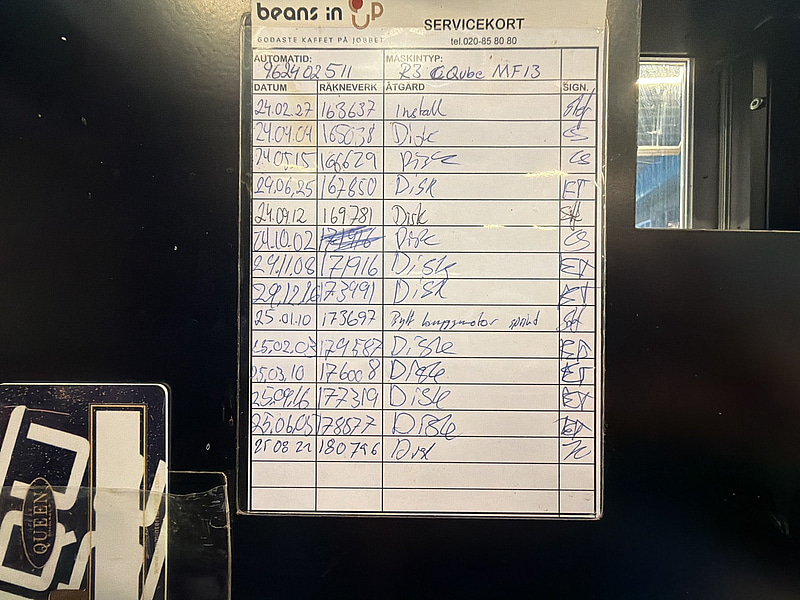 beans in UP
GODASTE KAFFET PÅ JOBBET
SERVICEKORT
tel.020-85 80 80
AUTOMATID: MASKINTYP:
962402511 R3 Qube MF13
DATUM RÄKNEVERK ÅTGÄRD SIGN.
24.02.27 163637 Install
24.04.04 165038 Disk CS
24.05.15 166629 Disk CS
24.06.25 167850 Disk ET
24.09.12 169781 Disk
24.10.02 Disk CS
24.11.08 171916 Disk ET
24.12.16 173491 Disk ET
25.01.10 173697 Bytt
25.02.03 174587 Disk ET
25.03.10 176008 Disk ET
25.04.16 177319 Disk ET
25.06.05 178877 Disk ET
25.08.22 180796 Disk
QUEEN